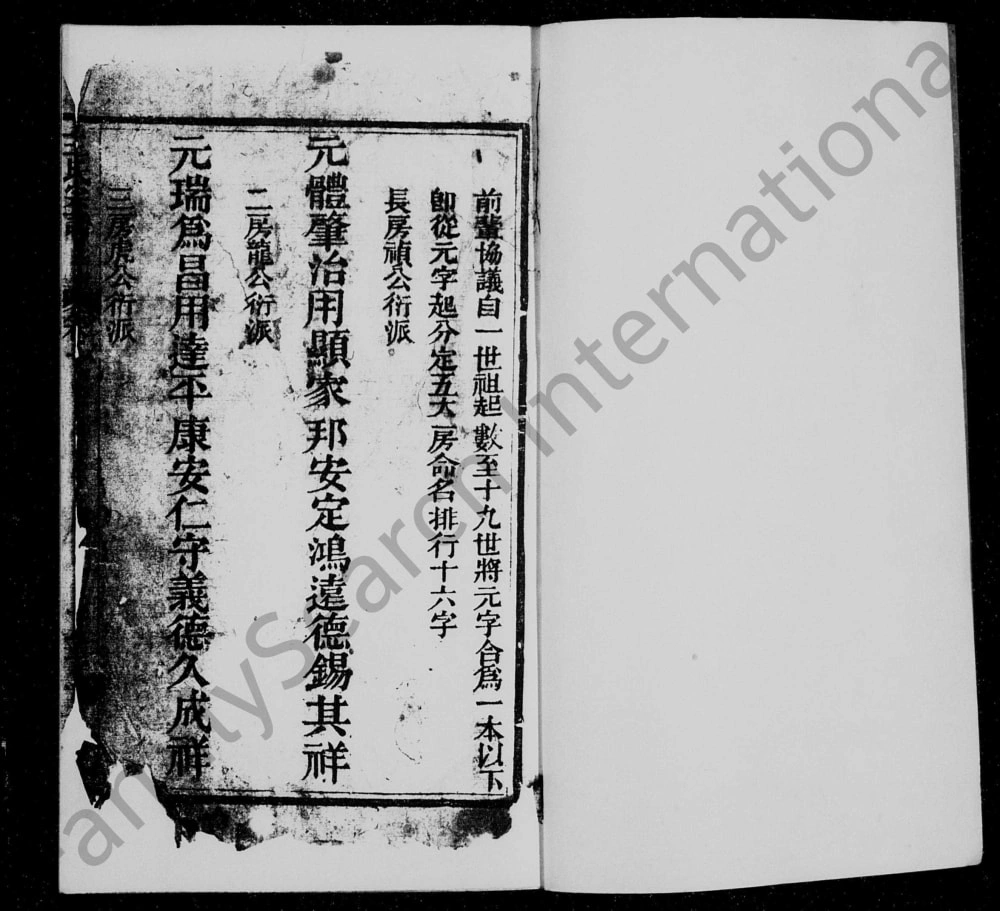 前輩協議自一世祖起數至十九世將元字合爲一本以下
卽從元字起分定五大房命名排行十六字
長房禎公衍派
元體肇治用顯家邦安定鴻遠德錫其祥
二房龍公衍派
元瑞爲昌用達平康安仁守義德久成祥
三房虎公衍派
FamilySearch International